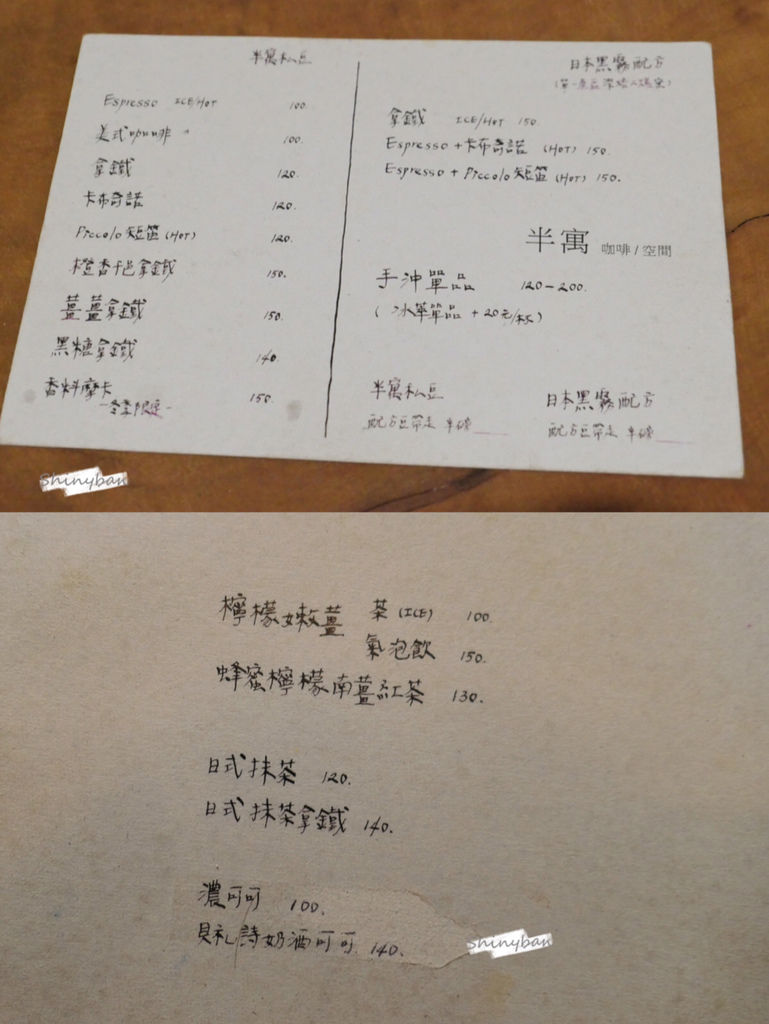 半寓私豆
Espresso ICE/HOT 100.
美式咖啡 " 100.
拿鐵 120.
卡布奇諾 120.
Piccolo 短笛 (HOT) 120.
橙香干邑拿鐵 150.
薑薑拿鐵 150.
黑糖拿鐵 140.
香料摩卡 150.
-冬季限定-
日本黑霧配方
拿鐵 ICE/HOT 150.
Espresso + 卡布奇諾 (HOT) 150.
Espresso + Piccolo 短笛 (HOT) 150.
半寓 咖啡/空間
手沖單品 120-200.
(冰單品 +20元/杯)
半寓私豆
配方豆帶走 半磅
日本黑霧配方
配方豆帶走 半磅
Shinyban
檸檬嫩薑 茶 (ICE) 100.
氣泡飲 150.
蜂蜜檸檬南薑紅茶 130.
日式抹茶 120.
日式抹茶拿鐵 140.
濃可可 100.
貝禮詩奶酒可可 140.
Shinyban